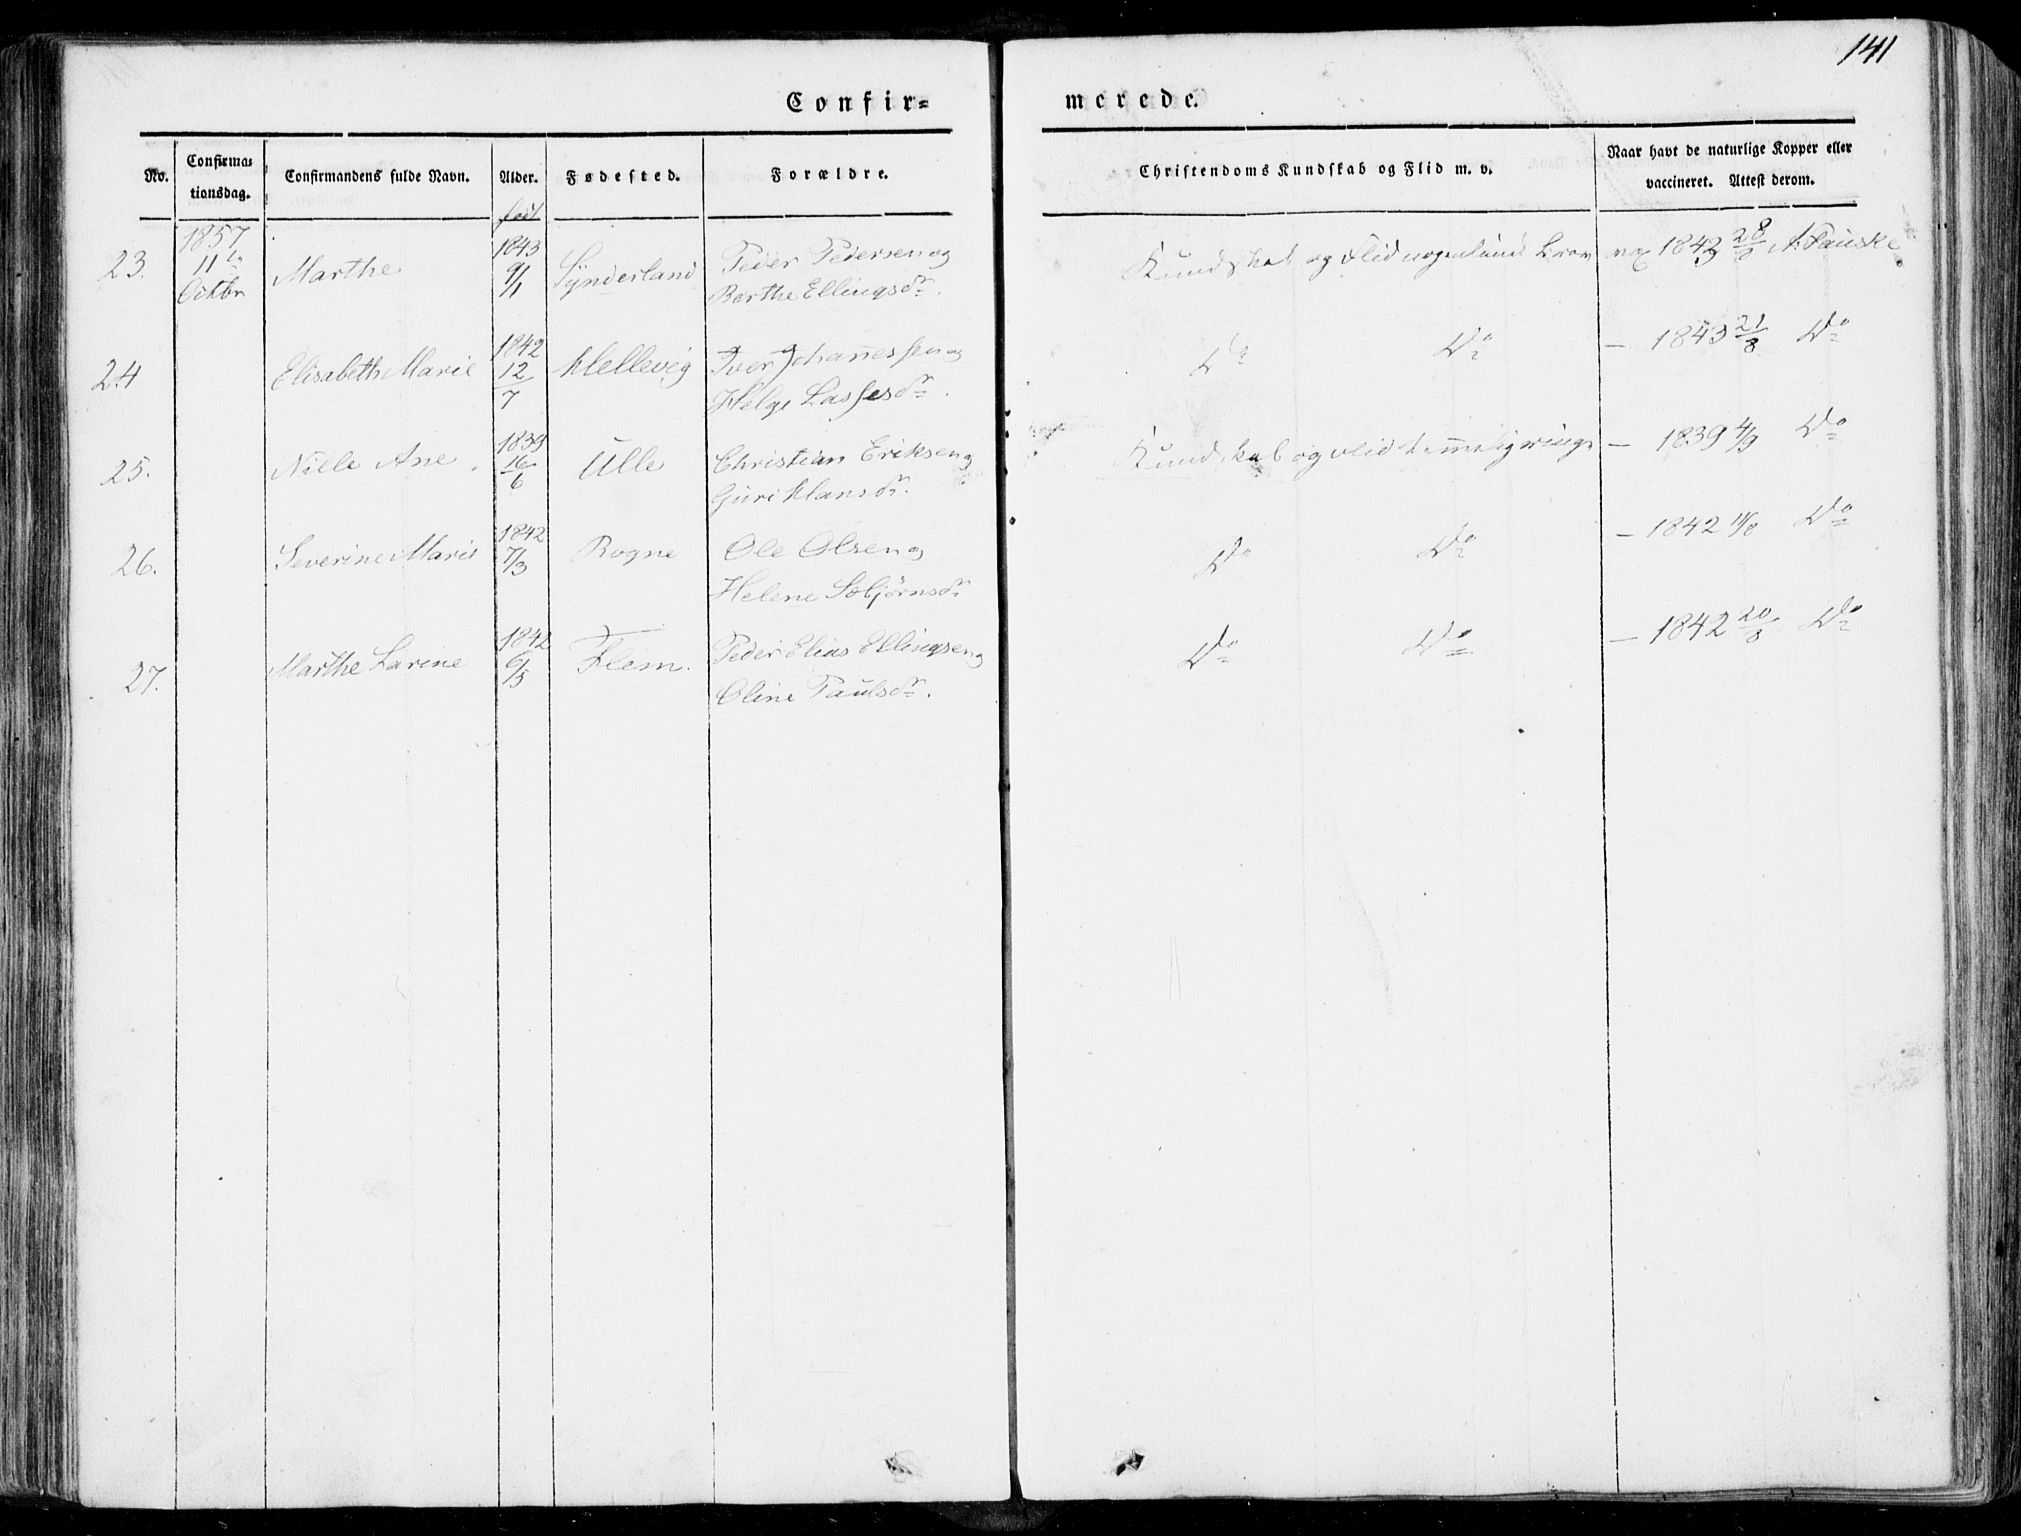 141
Confir=
merede.
No.
Confirma=
tionsdag.
Confirmandens fulde Navn.
Alder.
Fødested.
Forældre.
Christendoms Kundskab og Flid m. v.
Naar havt de naturlige Kopper eller
vaccineret. Attest derom.
født
23. 1857 11te Octbr Marthe 1843 9/1 Synderland Peder Pedersen og
Berthe Ellingsdr. Kundskab og Flid nogenlunde vax 1843 28/8 A. Pauske
24 Elisabeth Marie 1842 12/7 Hellevig Iver Johannessen og
Helge Lassesdr. Do Do — 1843 21/8 Do
25. Nille Ane 1839 16/6 Ulle Christian Eriksen og
Guri Hansdr. Kundskab og Flid temmelig ringe — 1839 4/9 Do
26. Severine Marie 1842 7/3 Rogne Ole Olsen og
Helene Sebjørnsdr. Do Do — 1842 Do
27. Marthe Larine 1842 6/5 Flem. Peder Elias Ellingsen og
Oline Paulsdr. Do Do — 1842 20/8 Do